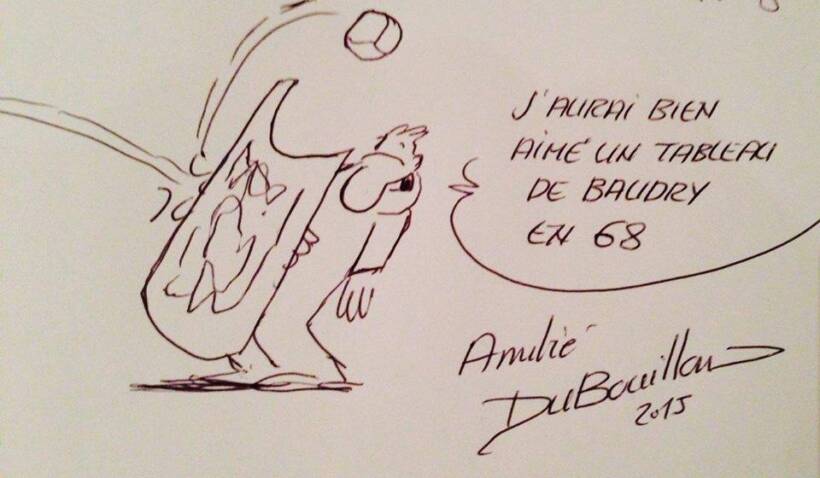 J'AURAI BIEN
AIMÉ UN TABLEAU
DE BAUDRY
EN 68
Amitié
DuBouillon
2015